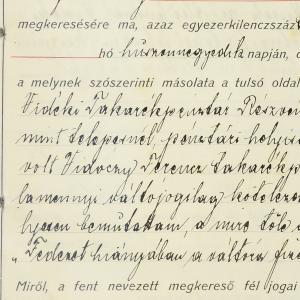 megkeresésére ma, azaz egyezerkilenczszáz
hó huszonnegyedik napján, d
a melynek szószerinti másolata a tulsó oldal
Vidéki Takarékpénztár Részvén
mint telepesnél, pénztári helyisé
volt Vidoczy Ferencz takarékp
lamennyi váltójogilag kötelezet
lyesen bemutattam, a mire tőle a
„Fedezet hiányában a váltóra fize
Miről, a fent nevezett megkereső fél jogai